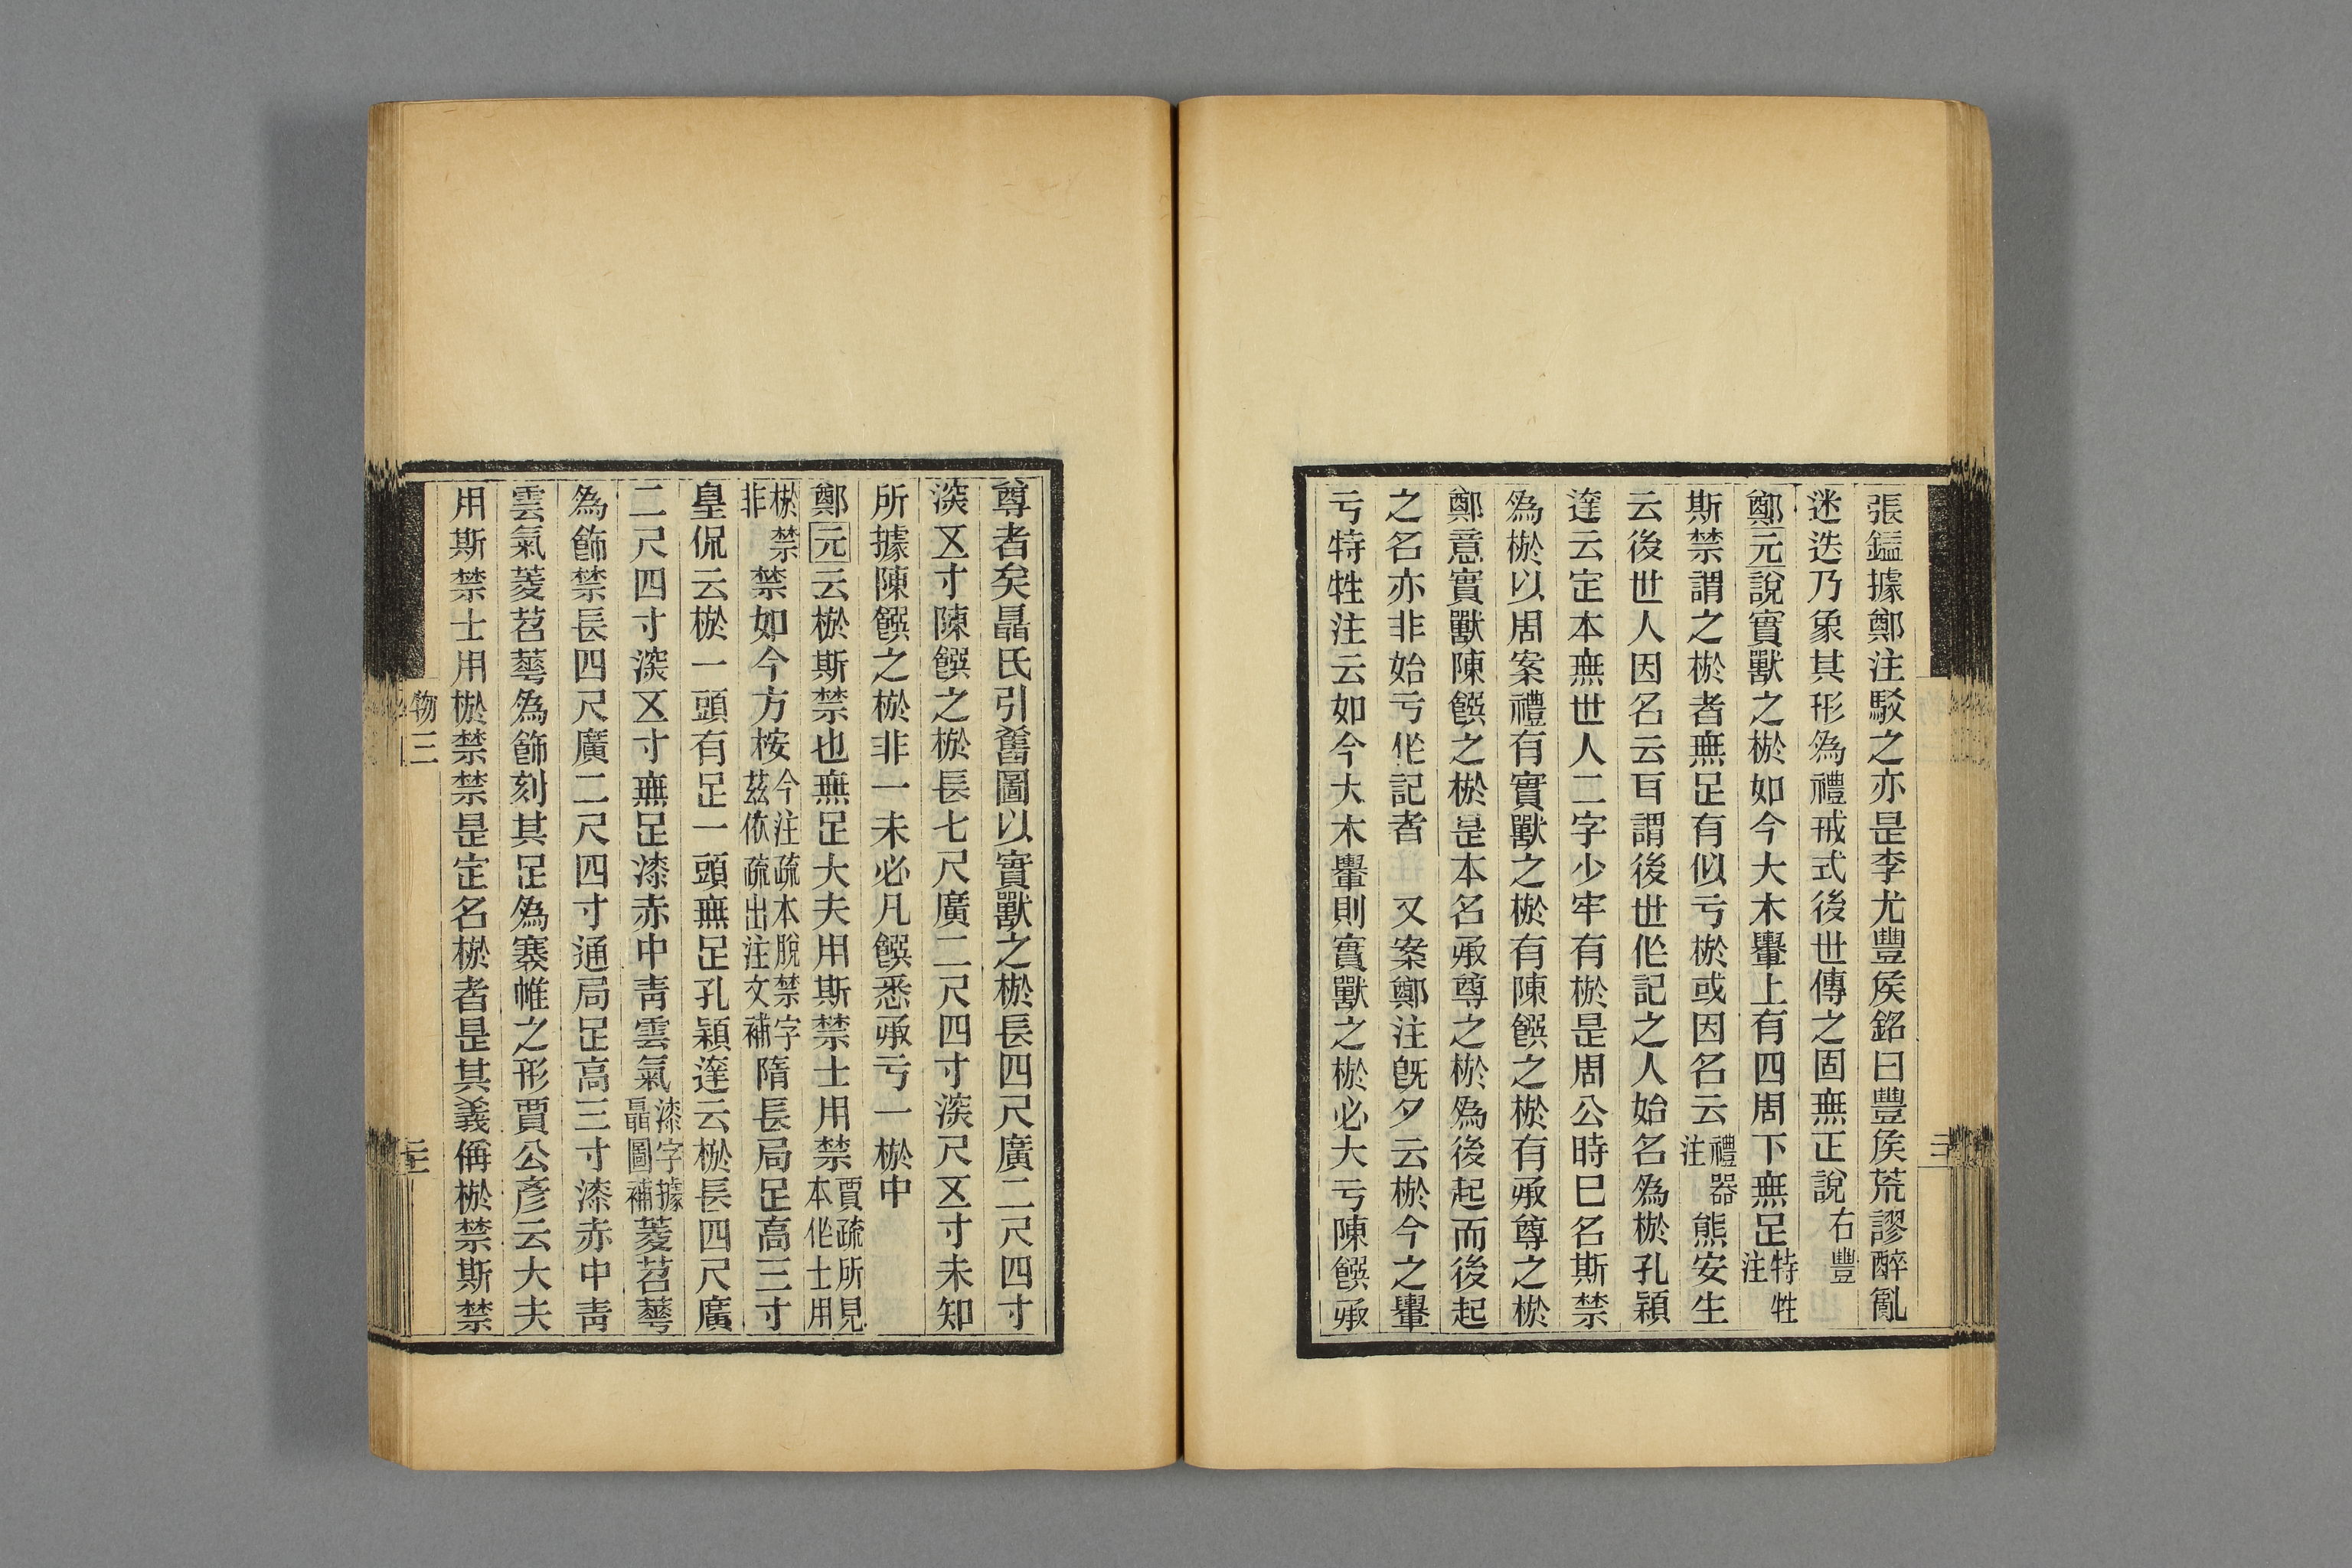 張鎰據鄭注駁之亦是李尤豐侯銘曰豐侯荒謬醉亂
迷迭乃象其形爲禮戒式後世傳之固無正說右豐
鄭元說實獸之棜如今大木轝上有四周下無足特牲注
斯禁謂之棜者無足有似亏棜或因名云禮器注熊安生
云後世人因名云耳謂後世作記之人始名爲棜孔穎
達云定本無世人二字少牢有棜是周公時已名斯禁
爲棜以周案禮有實獸之棜有陳饌之棜有承尊之棜
鄭意實獸陳饌之棜是本名承尊之棜爲後起而後起
之名亦非始亏作記者 又案鄭注旣夕云棜今之轝
亏特牲注云如今大木轝則實獸之棜必大亏陳饌承
尊者矣聶氏引舊圖以實獸之棜長四尺廣二尺四寸
深五寸陳饌之棜長七尺廣二尺四寸深尺五寸未知
所據陳饌之棜非一未必凡饌悉承亏一棜中
鄭元云棜斯禁也無足大夫用斯禁士用禁賈疏所見本作士用
棜禁非禁如今方桉今注疏本脫禁字茲依疏出注文補隋長局足高三寸
皇侃云棜一頭有足一頭無足孔穎達云棜長四尺廣
二尺四寸深五寸無足漆赤中靑雲氣漆字據聶圖補菱苕蕚
爲飾禁長四尺廣二尺四寸通局足高三寸漆赤中靑
雲氣菱苕蕚爲飾刻其足爲褰帷之形賈公彥云大夫
用斯禁士用棜禁禁是定名棜者是其義偁棜禁斯禁
物三